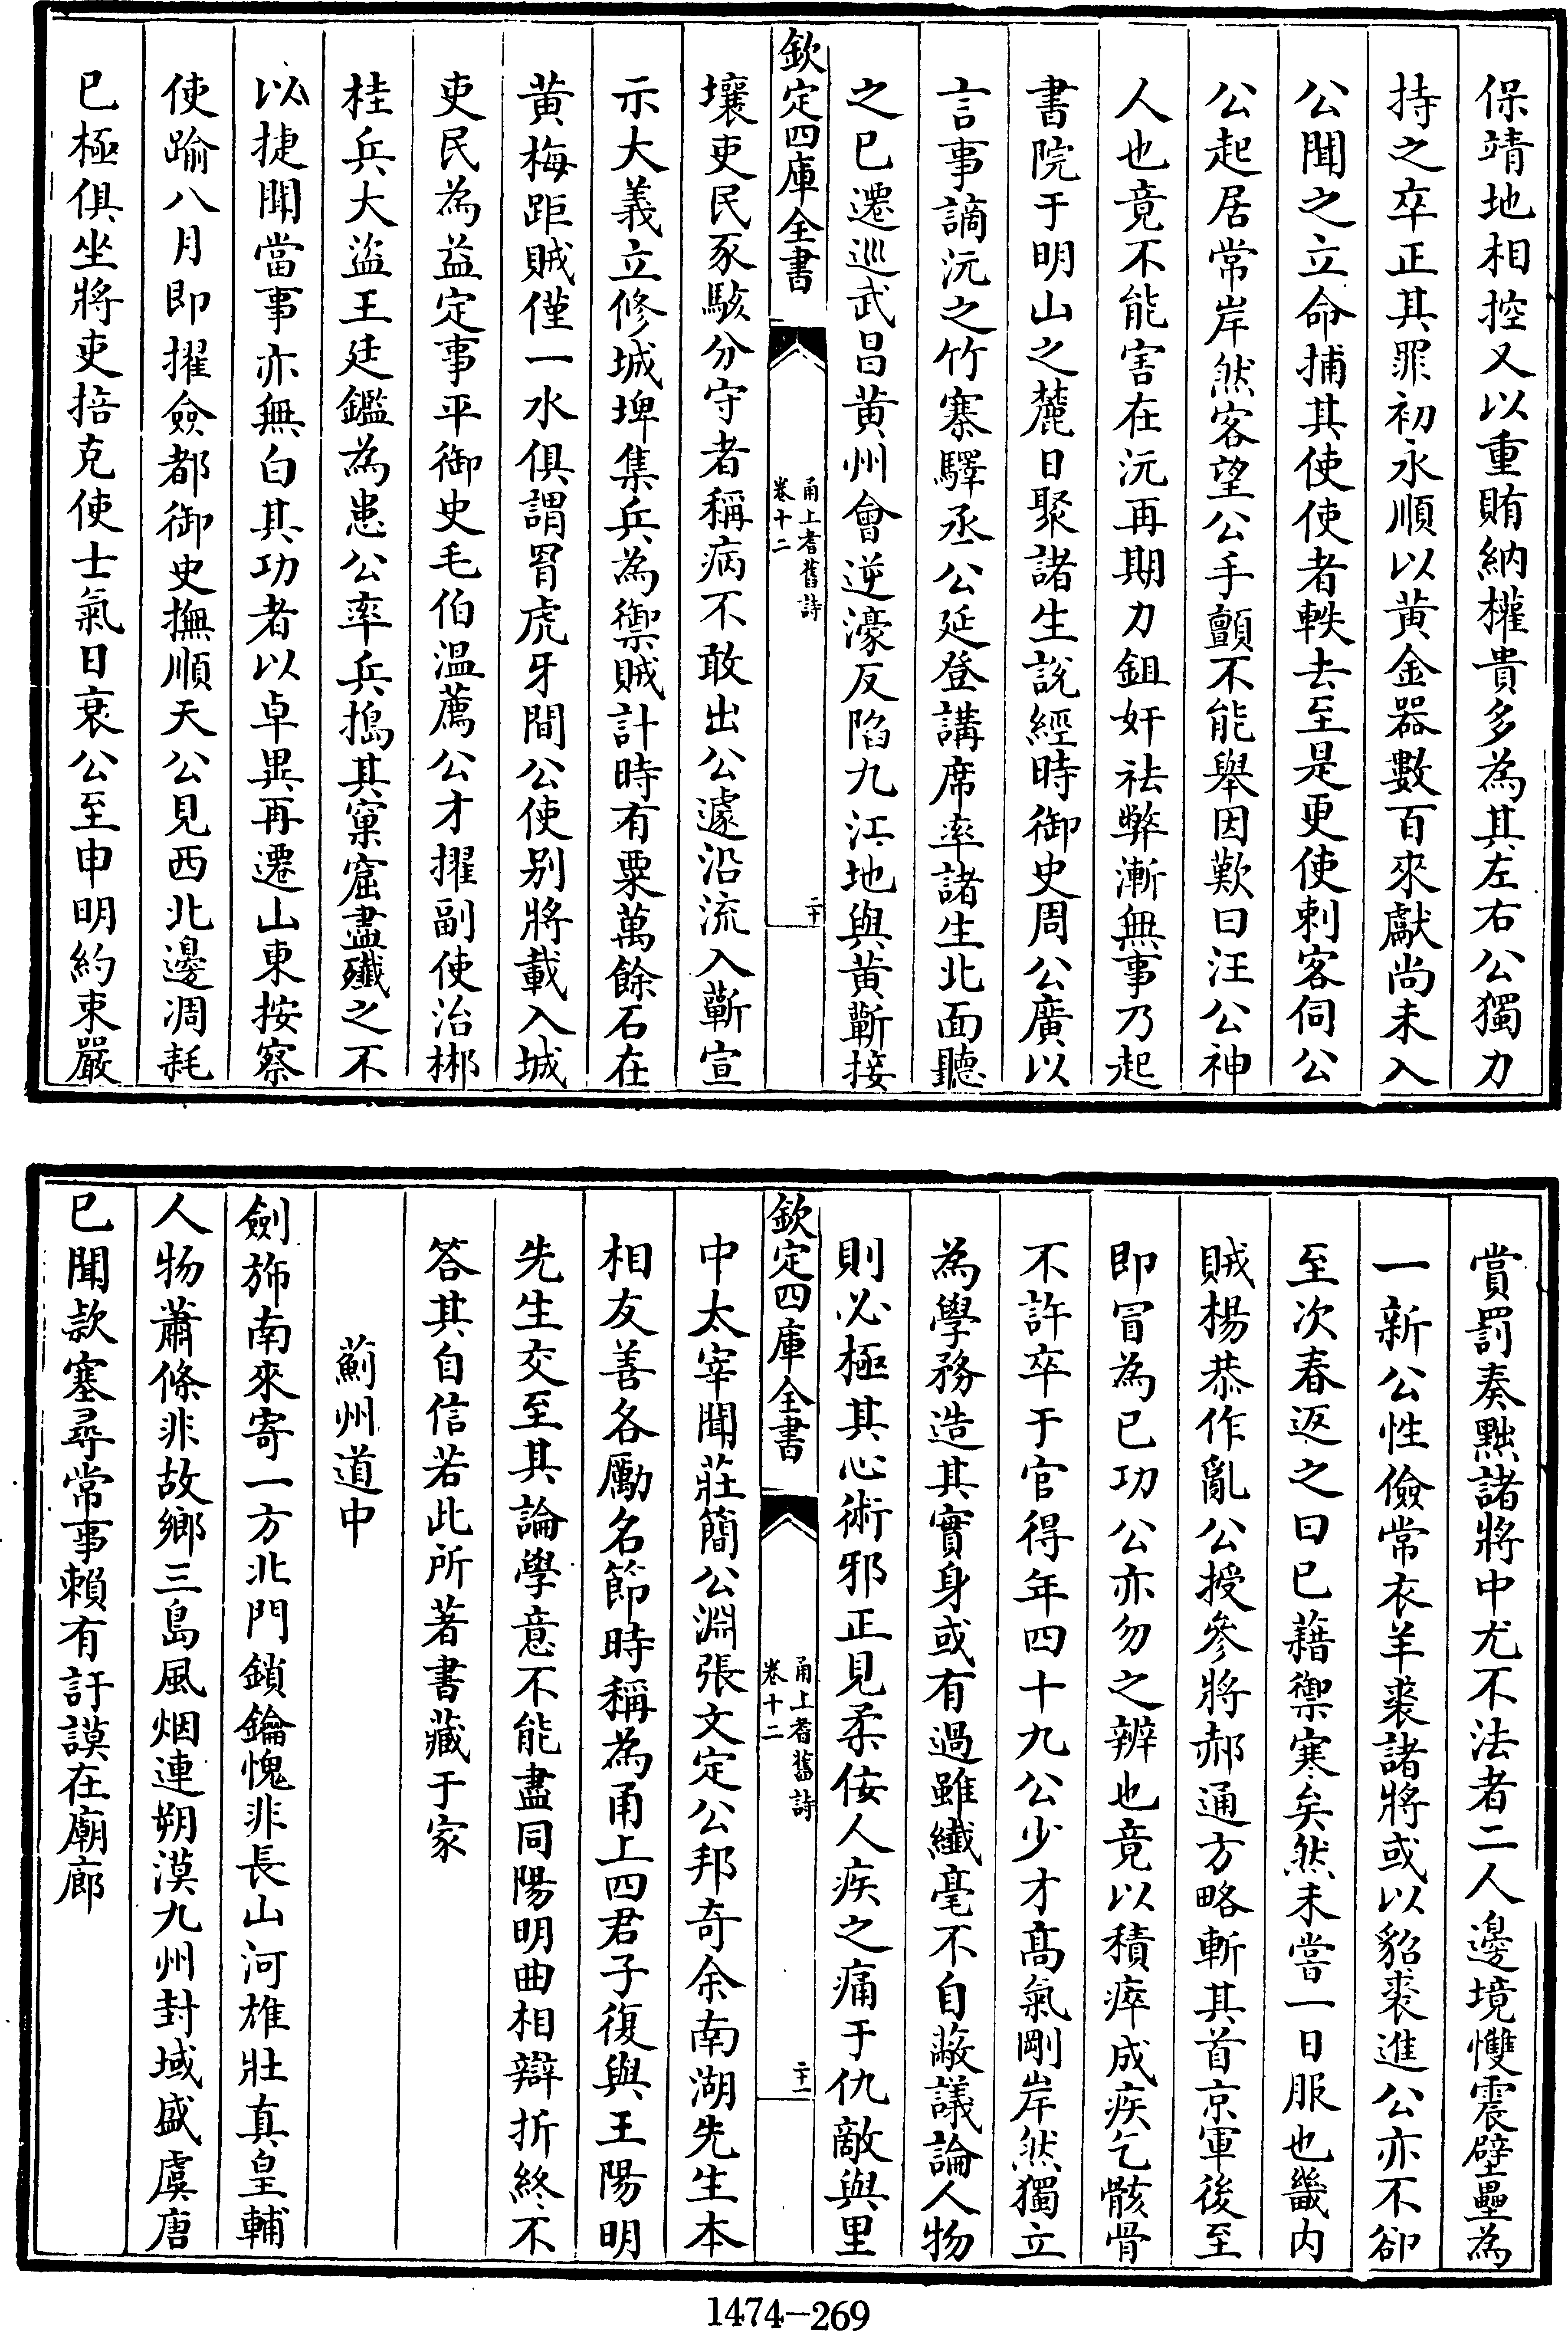 保靖地相控又以重賄納權貴多為其左右公獨力
持之卒正其罪初永順以黄金器數百來獻尚未入
公聞之立命捕其使使者軼去至是更使刺客伺公
公起居常岸然客望公手顫不能舉因歎曰汪公神
人也竟不能害在沅再期力鉏奸祛弊漸無事乃起
書院于明山之麓日聚諸生說經時御史周公廣以
言事謫沅之竹寨驛丞公延登講席率諸生北面聽
之已遷巡武昌黄州會逆濠反陷九江地與黄蘄接
欽定四庫全書
甬上耆舊詩
卷十二
二十
壤吏民豕駭分守者稱病不敢出公遽沿流入蘄宣
示大義立修城埤集兵為禦賊計時有粟萬餘石在
黄梅距賊僅一水俱謂胃虎牙間公使别將載入城
吏民為益定事平御史毛伯温薦公才擢副使治郴
桂兵大盜王廷鑑為患公率兵搗其窠窟盡殲之不
以捷聞當事亦無白其功者以卓異再遷山東按察
使踰八月即擢僉都御史撫順天公見西北邊凋耗
已極俱坐將吏掊克使士氣日衰公至申明約束嚴
賞罰奏黜諸將中尤不法者二人邊境慴震壁壘為
一新公性儉常衣羊裘諸將或以貂裘進公亦不卻
至次春返之曰已藉禦寒矣然未嘗一日服也畿内
賊楊恭作亂公授參將郝通方略斬其首京軍後至
即冒為已功公亦勿之辨也竟以積瘁成疾乞骸骨
不許卒于官得年四十九公少才高氣剛岸然獨立
為學務造其實身或有過雖纎毫不自蔽議論人物
則必極其心術邪正見柔佞人疾之痛于仇敵與里
欽定四庫全書
甬上耆舊詩
卷十二
二十一
中太宰聞莊簡公淵張文定公邦奇余南湖先生本
相友善各勵名節時稱為甬上四君子復與王陽明
先生交至其論學意不能盡同陽明曲相辯折終不
答其自信若此所著書藏于家
薊州道中
劍斾南來寄一方北門鎖鑰愧非長山河雄壯真皇輔
人物蕭條非故鄉三島風烟連朔漠九州封域盛虞唐
已聞款塞尋常事賴有訏謨在廟廊
1474-269